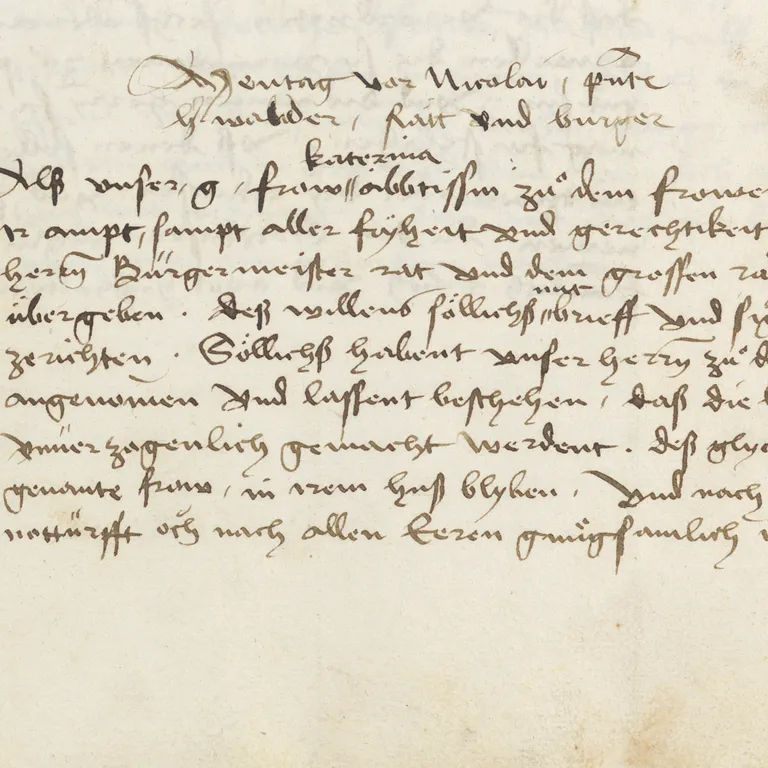 Mentag vor Nicolai, pnte
h walder, Rätt vnd burger
katerina
Alß vnser g frow äbbtissin zů dem frowe
ir ampt, sampt aller fryheit vnd gerechtikeit
herrn Bürgermeister rat vnd dem grossen ra
mit
übergeben. deß willens söllichß brieff vnd si
zerichten. Söllichß habent vnser herrn zů d
angenomen vnd lassent beschehen, daß die
vnuerzogenlich gemacht werdent. deß gly
genante frow, in irem huß blyben, vnd nach
notturfft och nach allen Eeren gnůgsamlich